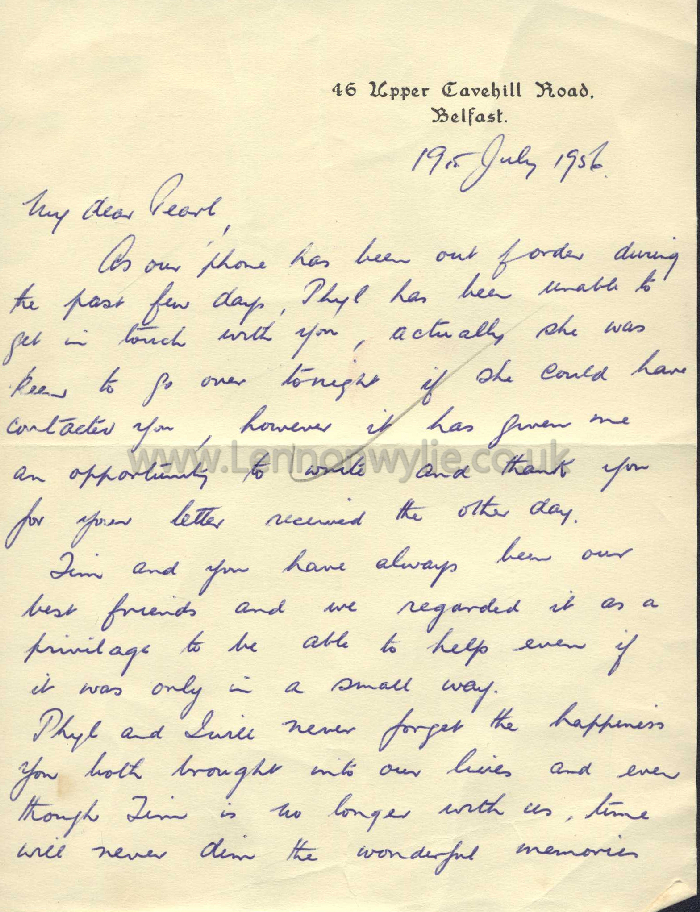 46 Upper Cavehill Road.
Belfast.
19th July 1956.
My dear Pearl,
As our phone has been out of order during
the past few days, Phyl has been unable to
get in touch with you, actually she was
keen to go over tonight if she could have
contacted you, however it has given me
an opportunity to write and thank you
www.Lennonwylie.co.uk
for your letter received the other day.
Jim and you have always been our
best friends and we regarded it as a
privilage to be able to help even if
it was only in a small way.
Phyl and I will never forget the happiness
you both brought into our lives and even
though Jim is no longer with us, time
will never dim the wonderful memories